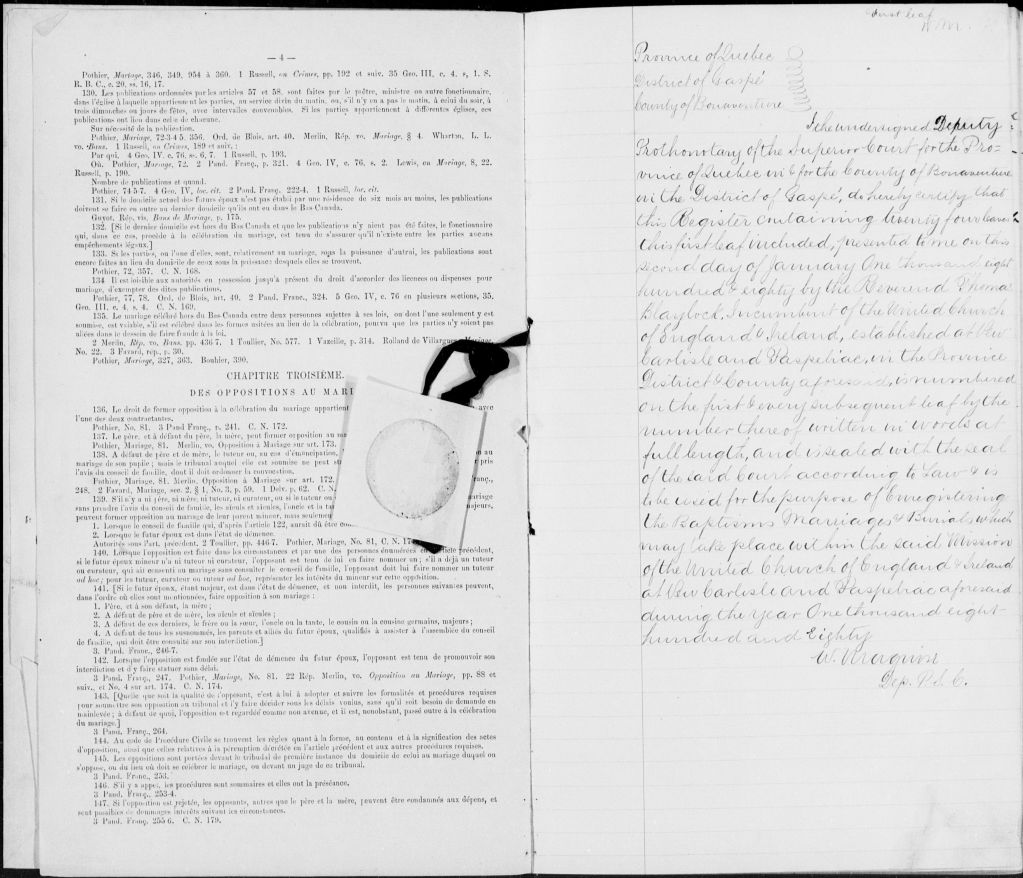 — 4 —
Pothier, Mariage, 346, 349, 954 à 360. 1 Russell, on Crimes, pp. 192 et suiv. 35 Geo. III, c. 4, s, 1. S.
R. B. C., c. 20. ss. 16, 17.
130. Les publications ordonnées par les articles 57 et 58, sont faites par le prêtre, ministre ou autre fonctionnaire,
dans l'église à laquelle appartiennent les parties, au service divin du matin, ou, s'il n'y en a pas le matin, à celui du soir, à
trois dimanches ou jours de fêtes, avec intervalles convenables. Si les parties appartiennent à différentes églises, ces
publications ont lieu dans celle de chacune.
Sur nécessité de la publication.
Pothier, Mariage, 72-3-4 5. 356. Ord. de Blois, art. 40. Merlin, Rép. vo. Mariage, § 4. Wharton, L. L.
vo. Bans. 1 Russell, on Crimes, 189 et suiv. ;
Par qui. 4 Geo. IV, c. 76, ss. 6, 7. 1 Russell, p. 193.
Où. Pothier, Mariage, 72. 2 Pand. Franç., p. 321. 4 Geo. IV, c. 76, s. 2. Lewis, on Mariage, 8, 22.
Russell, p. 190.
Nombre de publications et quand.
Pothier, 74-5-7. 4 Geo. IV, loc. cit. 2 Pand. Franç. 222-4. 1 Russell, loc. cit.
131. Si le domicile actuel des futurs époux n'est pas établi par une résidence de six mois au moins, les publications
doivent se faire en outre au dernier domicile qu'ils ont eu dans le Bas Canada.
Guyot, Rép. vis, Bans de Mariage, p. 175.
132. [Si le dernier domicile est hors du Bas Canada et que les publications n'y aient pas été faites, le fonctionnaire
qui, dans ce cas, procède à la célébration du mariage, est tenu de s'assurer qu'il n'existe entre les parties aucuns
empêchements légaux.]
133. Si les parties, ou l'une d'elles, sont, relativement au mariage, sous la puissance d'autrui, les publications sont
encore faites au lieu du domicile de ceux sous la puissance desquels elles se trouvent.
Pothier, 72, 357. C. N. 168.
134 Il est loisible aux autorités en possession jusqu'à présent du droit d'accorder des licences ou dispenses pour
mariage, d'exempter des dites publications.
Pothier, 77, 78. Ord. de Blois, art. 40. 2 Pand. Franç., 324. 5 Geo. IV, c. 76 en plusieurs sections, 35,
Geo. III, c. 4, s. 4. C. N. 169.
135. Le mariage célébré hors du Bas-Canada entre deux personnes sujettes à ses lois, ou dont l'une seulement y est
soumise, est valable, s'il est célébré dans les formes usitées au lieu de la célébration, pourvu que les parties n'y soient pas
allées dans le dessein de faire fraude à la loi.
2 Merlin, Rép. vo. Bans. pp. 436 7. 1 Toullier, No. 577. 1 Vazeille, p. 314. Rolland de Villargues, Mariage,
No. 22. 3 Favard, rép., p. 30.
Pothier, Mariage, 327, 363. Bouhier, 390.
CHAPITRE TROISIÈME.
DES OPPOSITIONS AU MARI
136. Le droit de former opposition à la célébration du mariage appartient avec
l'une des deux contractantes.
Pothier, No. 81. 3 Pand Franç., p. 241. C. N. 172.
137. Le père, et à défaut du père, la mère, peut former opposition au
Pothier, Mariage, 81. Merlin, vo. Opposition à Mariage sur art. 173.
138. A défaut de père et de mère, le tuteur ou, au cas d'émancipation, au
mariage de son pupile ; mais le tribunal auquel elle est soumise ne peut pris
l'avis du conseil de famille, dont il doit ordonner la convocation.
Pothier, Mariage, 81. Merlin, Opposition à Mariage sur art. 172. ranç.,
248. 2 Favard, Mariage, sec. 2, § 1, No. 3, p. 59. 1 Delv. p. 62. C. N.
139. S'il n'y a ni père, ni mère, ni tuteur, ni curateur, ou si le tuteur ou ariage
sans prendre l'avis du conseil de famille, les aïeuls et aïeules, l'oncle et la ajeurs,
peuvent former opposition au mariage de leur parent mineur, mais seulement
1. Lorsque le conseil de famille qui, d'après l'article 122, aurait dû être
2. Lorsque le futur époux est dans l'état de démence.
Autorités sous l'art. précédent. 2 Toullier, pp. 446-7. Pothier, Mariage, No. 81, C. N.
140. Lorsque l'opposition est faite dans les circonstances et par une des personnes énumérées en article précédent,
si le futur époux mineur n'a ni tuteur ni curateur, l'opposant est tenu de lui en faire nommer un ; s'il a déjà un tuteur
ou curateur, qui ait consenti au mariage sans consulter le conseil de famille, l'opposant doit lui faire nommer un tuteur
ad hoc ; pour les tuteur, curateur ou tuteur ad hoc, représenter les intérêts du mineur sur cette opposition.
141. [Si le futur époux, étant majeur, est dans l'état de démence, et non interdit, les personnes suivantes peuvent,
dans l'ordre où elles sont mentionnées, faire opposition à son mariage :
1. Père, et à son défaut, la mère ;
2. A défaut de père et de mère, les aïeuls et aïeules ;
3. A défaut de ces derniers, le frère ou la sœur, l'oncle ou la tante, le cousin ou la cousine germains, majeurs ;
4. A défaut de tous les susnommés, les parents et alliés du futur époux, qualifiés à assister à l'assemblée du conseil
de famille, qui doit être consulté sur son interdiction.]
3. Pand. Franç., 246-7.
142. Lorsque l'opposition est fondée sur l'état de démence du futur époux, l'opposant est tenu de promouvoir son
interdiction et d'y faire statuer sans délai.
3 Pand. Franç., 247. Pothier, Mariage, No. 81. 22 Rép. Merlin, vo. Opposition au Mariage, pp. 88 et
suiv., et No. 4 sur art. 174. C. N. 174.
143. [Quelle que soit la qualité de l'opposant, c'est à lui à adopter et suivre les formalités et procédures requises
pour soumettre son opposition au tribunal et l'y faire décider sous les délais voulus, sans qu'il soit besoin de demande en
mainlevée ; à défaut de quoi, l'opposition est regardée comme non avenue, et il est, nonobstant, passé outre à la célébration
du mariage.]
3 Pand. Franç., 264.
144. Au code de Procédure Civile se trouvent les règles quant à la forme, au contenu et à la signification des actes
d'opposition, ainsi que celles relatives à la péremption décrétée en l'article précédent et aux autres procédures requises.
145. Les oppositions sont portées devant le tribunal de première instance du domicile de celui au mariage duquel on
s'oppose, ou du lieu où doit se célébrer le mariage, ou devant un juge de ce tribunal.
3 Pand. Franç., 253.
146. S'il y a appel, les procédures sont sommaires et elles ont la préséance.
3 Pand. Franç., 253-4.
147. Si l'opposition est rejetée, les opposants, autres que le père et la mère, peuvent être condamnés aux dépens, et
sont passibles de dommages intérêts suivant les circonstances.
3 Pand. Franç. 255 6. C. N. 179.
First leaf
W.M.
Province of Quebec
District of Gaspé
County of Bonaventure
I, the undersigned Deputy
Prothonotary of the Superior Court for the Pro-
vince of Quebec in & for the County of Bonaventure
in the District of Gaspé, do hereby certify that
this Register containing twenty four leaves
this first leaf included, presented to me on this
second day of January One thousand eight
hundred & eighty by the Reverend Thomas
Blaylock, Incumbent of the United Church
of England & Ireland, established at New
Carlisle and Paspebiac, in the Province
District & County aforesaid, is numbered
on the first & every subsequent leaf by the
number thereof written in words at
full length, and is sealed with the seal
of the said Court according to Law & is
to be used for the purpose of Enregistering
the Baptisms Marriages & Burials which
may take place within the said Mission
of the United Church of England & Ireland
at New Carlisle and Paspebiac aforesaid
during the year One thousand eight
hundred and Eighty
Dep. P.S.C.